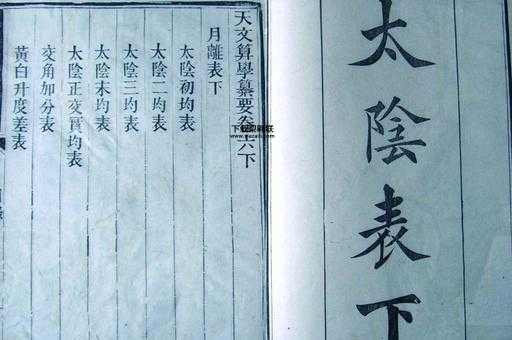 太陰表下
天文算學纂要卷十六下
月離表下
太陰初均表
太陰二均表
太陰三均表
太陰末均表
太陰正交實均表
交角加分表
黃白升度差表